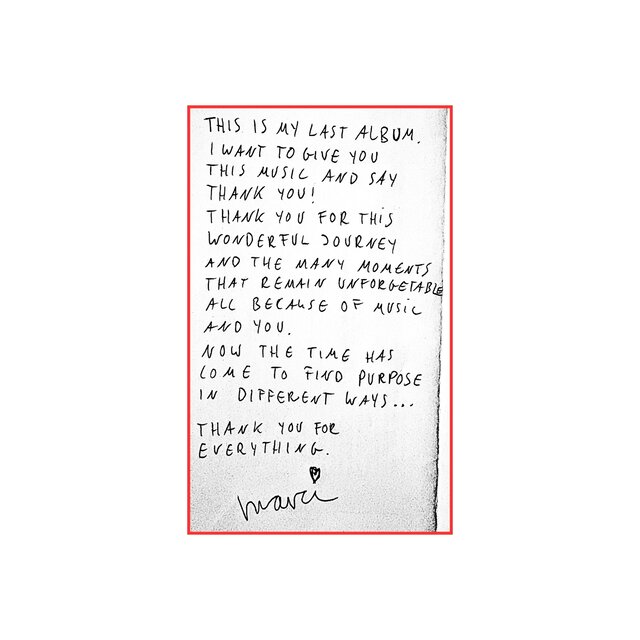 THIS IS MY LAST ALBUM.
I WANT TO GIVE YOU
THIS MUSIC AND SAY
THANK YOU!
THANK YOU FOR THIS
WONDERFUL JOURNEY
AND THE MANY MOMENTS
THAT REMAIN UNFORGETABLE
ALL BECAUSE OF MUSIC
AND YOU.
NOW THE TIME HAS
COME TO FIND PURPOSE
IN DIFFERENT WAYS...
THANK YOU FOR
EVERYTHING.
marci